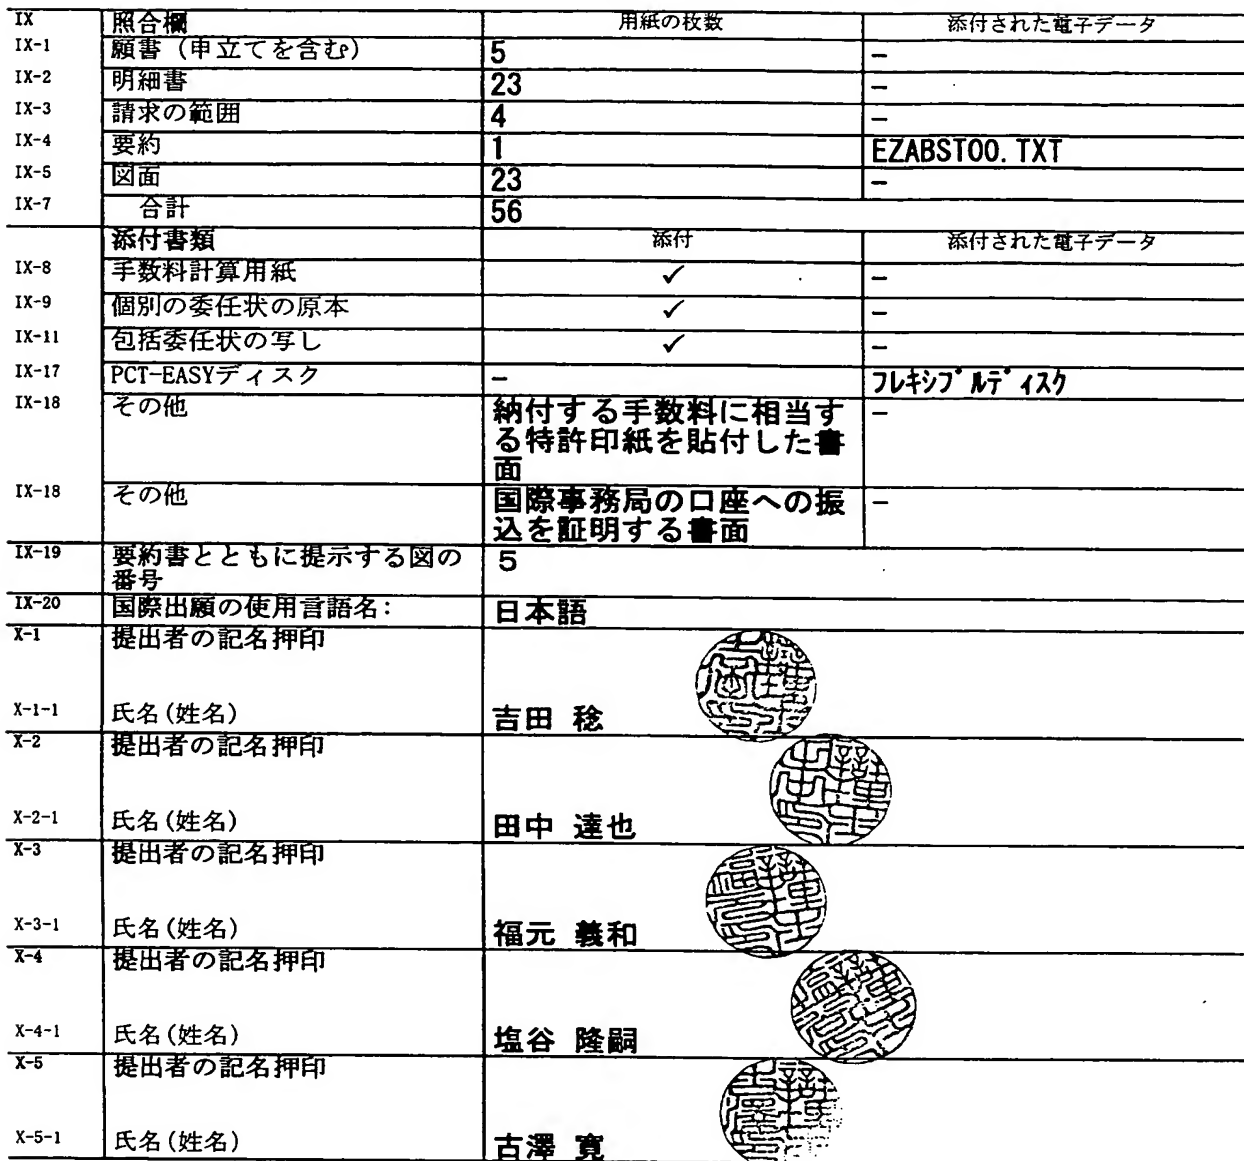 IX 照合欄 用紙の枚数 添付された電子データ
IX-1 願書（申立てを含む） 5 −
IX-2 明細書 23 −
IX-3 請求の範囲 4 −
IX-4 要約 1 EZABST00.TXT
IX-5 図面 23 −
IX-7 合計 56
添付書類 添付 添付された電子データ
IX-8 手数料計算用紙 ✓ −
IX-9 個別の委任状の原本 ✓ −
IX-11 包括委任状の写し ✓ −
IX-17 PCT-EASYディスク − フレキシブルディスク
IX-18 その他 納付する手数料に相当す −
る特許印紙を貼付した書
面
IX-18 その他 国際事務局の口座への振 −
込を証明する書面
IX-19 要約書とともに提示する図の 5
番号
IX-20 国際出願の使用言語名： 日本語
X-1 提出者の記名押印
X-1-1 氏名(姓名) 吉田 稔
X-2 提出者の記名押印
X-2-1 氏名(姓名) 田中 達也
X-3 提出者の記名押印
X-3-1 氏名(姓名) 福元 義和
X-4 提出者の記名押印
X-4-1 氏名(姓名) 塩谷 隆嗣
X-5 提出者の記名押印
X-5-1 氏名(姓名) 古澤 寛